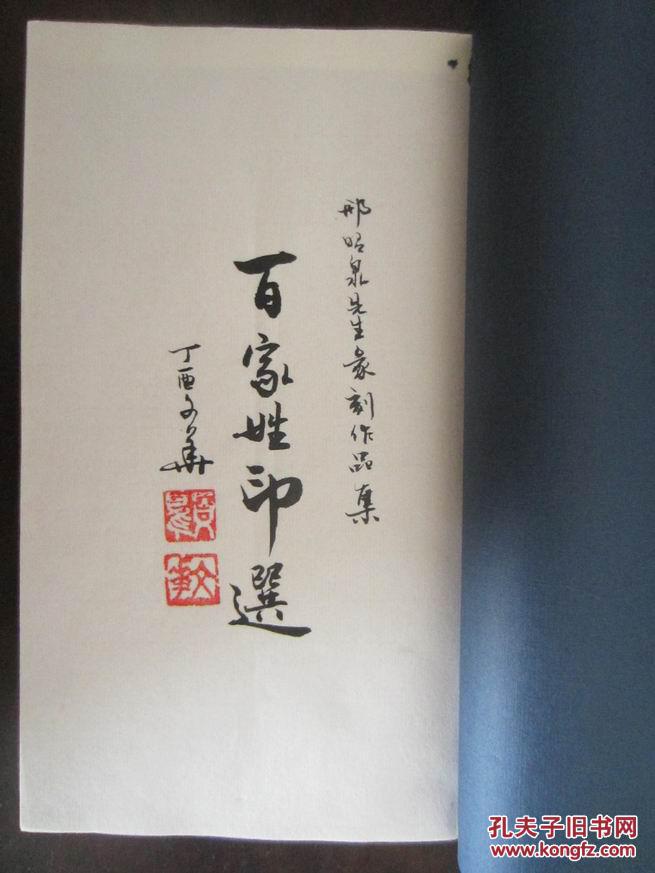 邢昭泉先生篆刻作品集
百家姓印選
丁酉文華
文華
孔夫子旧书网
www.kongfz.com